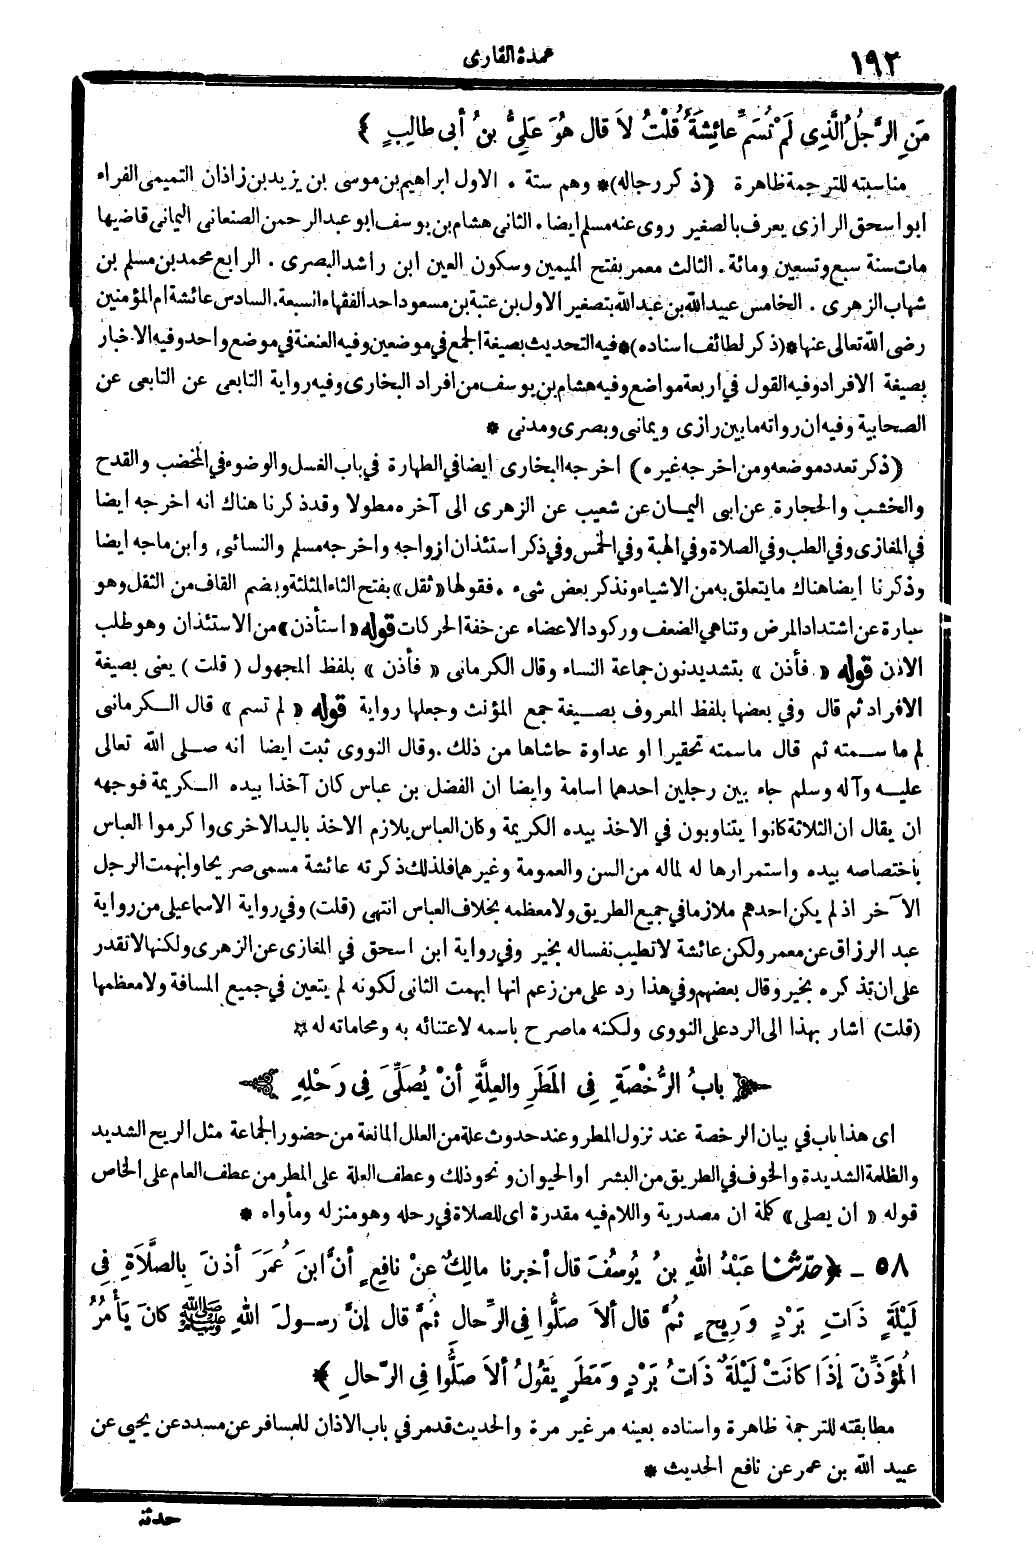 ١٩٢
عمدة القارى
مَنِ الرَّجُلُ الَّذِى لَمْ تُسَمِّ عائِشَةُ قُلْتُ لاَ قال هُوَ عَلِيُّ بنُ أبى طالِبٍ ﴾
مناسبته للترجمة ظاهرة (ذكر رجاله)* وهم ستة . الاول ابراهيم بن موسى بن يزيد بن زاذان التميمى الفراء
ابو اسحق الرازى يعرف بالصغير روى عنه مسلم ايضا . الثانى هشام بن يوسف ابو عبد الرحمن الصنعانى اليمانى قاضيها
مات سنة سبع وتسعين ومائة . الثالث معمر بفتح الميمين وسكون العين ابن راشد البصرى . الرابع محمد بن مسلم بن
شهاب الزهرى . الخامس عبيد الله بن عبد الله بتصغير الاول بن عتبة بن مسعود احد الفقهاء السبعة . السادس عائشة ام المؤمنين
رضى الله تعالى عنها *(ذكر لطائف اسناده)* فيه التحديث بصيغة الجمع فى موضعين وفيه العنعنة فى موضع واحد وفيه الاخبار
بصيغة الافراد وفيه القول فى اربعة مواضع وفيه هشام بن يوسف من افراد البخارى وفيه رواية التابعى عن التابعى عن
الصحابية وفيه ان رواته ما بين رازى ويمانى وبصرى ومدنى *
(ذكر تعدد موضعه ومن اخرجه غيره) اخرجه البخارى ايضا فى الطهارة فى باب الغسل والوضوء فى المخضب والقدح
والخشب والحجارة عن ابى اليمان عن شعيب عن الزهرى الى آخره مطولا وقد ذكرنا هناك انه اخرجه ايضا
فى المغازى وفى الطب وفى الصلاة وفى الهبة وفى الخمس وفى ذكر استئذان ازواجه واخرجه مسلم والنسائى وابن ماجه ايضا
وذكرنا ايضا هناك ما يتعلق به من الاشياء ونذكر بعض شىء . فقولها « ثقل » بفتح الثاء المثلثة وبضم القاف من الثقل وهو
عبارة عن اشتداد المرض وتناهى الضعف وركود الاعضاء عن خفة الحركات قوله « استأذن » من الاستئذان وهو طلب
الاذن قوله « فأذن » بتشديد نون جماعة النساء وقال الكرمانى « فأذن » بلفظ المجهول ( قلت ) يعنى بصيغة
الافراد ثم قال وفى بعضها بلفظ المعروف بصيغة جمع المؤنث وجعلها رواية قوله « لم تسم » قال الكرمانى
لم ما سمته ثم قال ما سمته تحقيرا او عداوة حاشاها من ذلك . وقال النووى ثبت ايضا انه صلى الله تعالى
عليه وآله وسلم جاء بين رجلين احدهما اسامة وايضا ان الفضل بن عباس كان آخذا بيده الكريمة فوجهه
ان يقال ان الثلاثة كانوا يتناوبون فى الاخذ بيده الكريمة وكان العباس يلازم الاخذ باليد الاخرى واكرموا العباس
باختصاصه بيده واستمرارها له لماله من السن والعمومة وغيرهما فلذلك ذكرته عائشة مسمى صريحا وابهمت الرجل
الآخر اذ لم يكن احدهم ملازما فى جميع الطريق ولا معظمه بخلاف العباس انتهى (قلت) وفى رواية الاسماعيلى من رواية
عبد الرزاق عن معمر ولكن عائشة لا تطيب نفسا له بخير وفى رواية ابن اسحق فى المغازى عن الزهرى ولكنها لا تقدر
على ان تذكره بخير وقال بعضهم وفى هذا رد على من زعم انها ابهمت الثانى لكونه لم يتعين فى جميع المسافة ولا معظمها
(قلت) اشار بهذا الى الرد على النووى ولكنه ما صرح باسمه لاعتنائه به ومحاماته له *
بابُ الرُّخْصَةِ فِى المَطَرِ والعِلَّةِ أنْ يُصَلِّىَ فِى رَحْلِهِ
اى هذا باب فى بيان الرخصة عند نزول المطر وعند حدوث علة من العلل المانعة من حضور الجماعة مثل الريح الشديد
والظلمة الشديدة والخوف فى الطريق من البشر او الحيوان ونحو ذلك وعطف العلة على المطر من عطف العام على الخاص
قوله « ان يصلى » كلمة ان مصدرية واللام فيه مقدرة اى للصلاة فى رحله وهو منزله ومأواه *
٥٨ ـ ﴿ حدّثنا عَبْدُ اللهِ بنُ يُوسُفَ قال أخبرنا مالِكٌ عنْ نافِعٍ أنَّ ابنَ عُمَرَ أذنَ بِالصَّلاَةِ فِى
لَيْلَةٍ ذَاتِ بَرْدٍ وَرِيحٍ ثُمَّ قال ألاَ صَلُّوا فِى الرِّحال ثُمَّ قال إنَّ رسولَ اللهِ ﷺ كانَ يَأْمُرُ
المُؤَذِّنَ إذَا كانَتْ لَيْلَةٌ ذَاتُ بَرْدٍ وَمَطَرٍ يَقُولُ ألاَ صَلُّوا فِى الرِّحالِ ﴾
مطابقته للترجمة ظاهرة واسناده بعينه مر غير مرة والحديث قد مر فى باب الاذان للمسافر عن مسدد عن يحيى عن
عبيد الله بن عمر عن نافع الحديث *
حدثنا